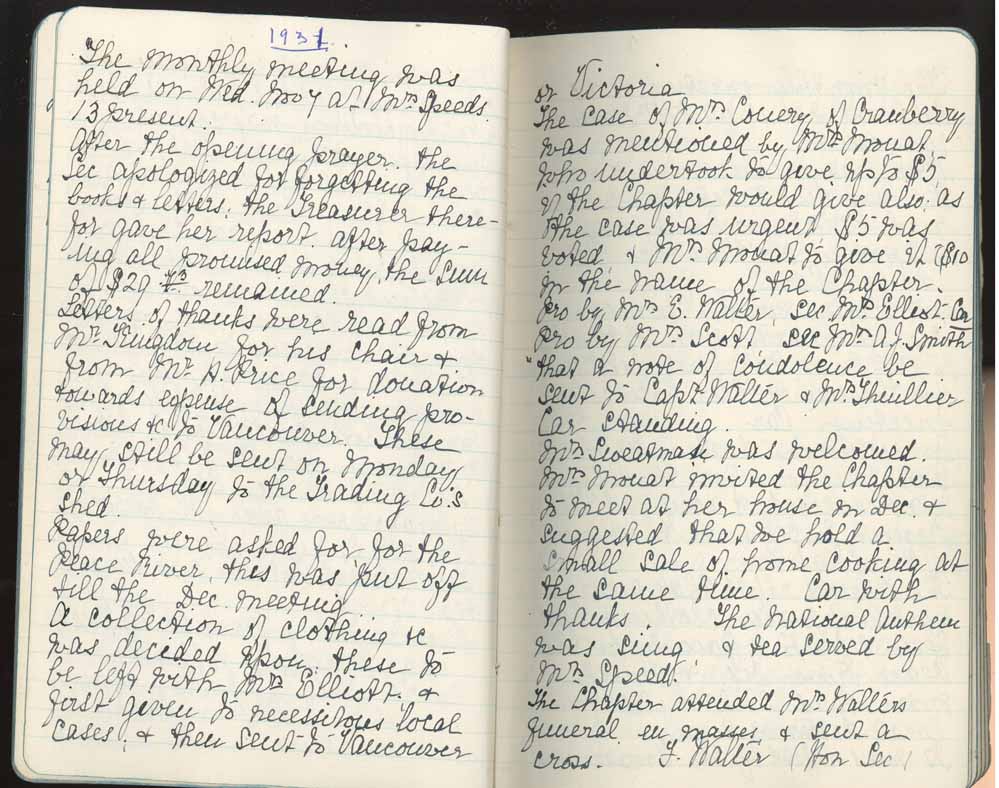 1931
The monthly meeting was
held on Wed. Nov 4 at Mrs Speeds
13 present.
After the opening prayer. the
Sec apologized for forgetting the
books & letters, the Treasurer there-
for gave her report. after pay-
ing all promised money, the sum
of $29 remained.
Letters of thanks were read from
Mr Kingdom for his chair &
from Mr A. Price for donation
towards expense of sending pro-
visions &c to Vancouver. These
may still be sent on Monday
or Thursday to the Trading Co's
shed.
Papers were asked for, for the
Peace River, this was put off
till the Dec. meeting.
A collection of clothing &c
was decided upon, these to
be left with Mrs Elliott. &
first given to necessitous local
cases, & then sent to Vancouver
or Victoria
The case of Mrs Couery of Cranberry
was mentioned by Mrs Mouat
who undertook to give up to $5,
if the Chapter would give also; as
the case was urgent $5 was
voted & Mrs Mouat to give it ($10
in the name of the Chapter.
Pro by Mrs E. Walter, Sec Mrs Elliot. Car
Pro by Mrs Scott sec Mrs A.J. Smith
"that a note of condolence be
sent to Capt. Walter & Mrs
Car standing.
Mrs Sweatman was welcomed.
Mrs Mouat invited the Chapter
to meet at her house in Dec. &
suggested that we hold a
small sale of home cooking at
the same time. Car with
thanks. The National Anthem
was sung & tea served by
Mrs Speed.
The Chapter attended Mrs Walters
funeral en masse, & sent a
cross. F. Walter (Hon Sec)